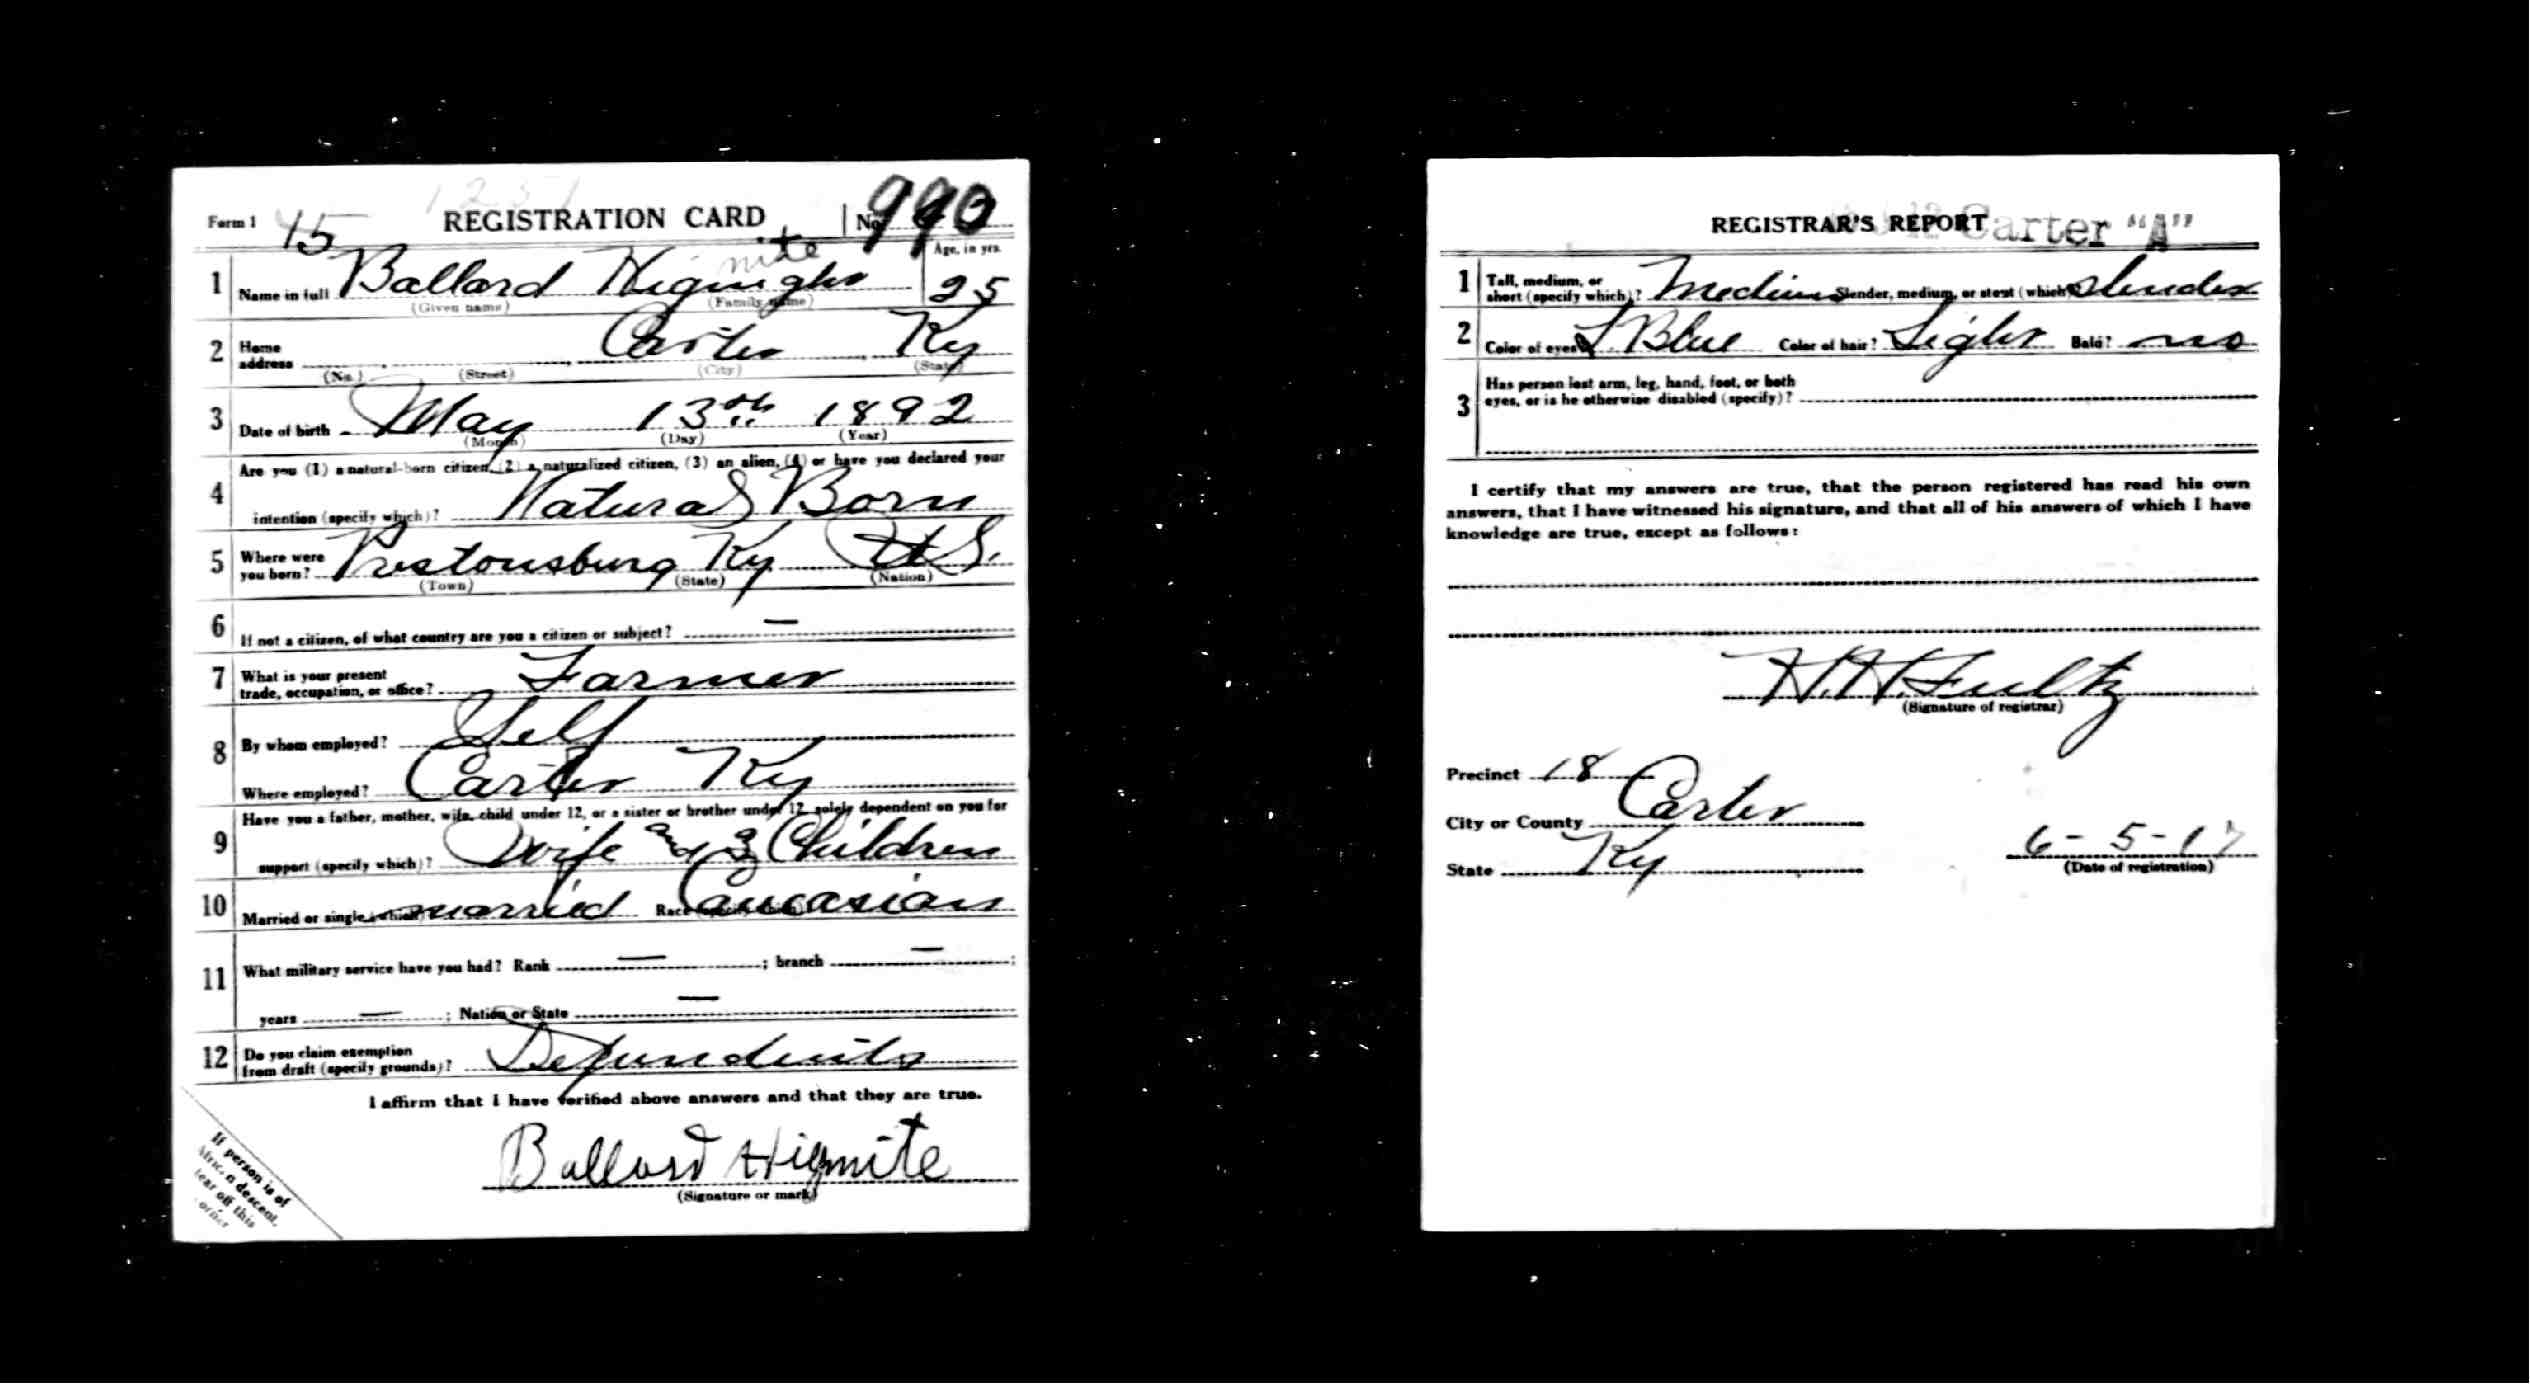 1251
Form 1 45 REGISTRATION CARD No. 990
nite
Age, in yrs.
1 Name in full Ballard Hignight 25
(Given name) (Family name)
2 Home address Carter Ky
(No.) (Street) (City) (State)
3 Date of birth May 13th 1892
(Month) (Day) (Year)
Are you (1) a natural-born citizen, (2) a naturalized citizen, (3) an alien, (4) or have you declared your
4 intention (specify which)? Natural Born
5 Where were you born? Prestonsburg Ky U.S.
(Town) (State) (Nation)
6 If not a citizen, of what country are you a citizen or subject? —
7 What is your present trade, occupation, or office? Farmer
8 By whom employed? Self
Where employed? Carter Ky
Have you a father, mother, wife, child under 12, or a sister or brother under 12, solely dependent on you for
9 support (specify which)? Wife and 3 Children
10 Married or single (which)? married Race (specify which)? Caucasian
11 What military service have you had? Rank — ; branch — ;
years — ; Nation or State —
12 Do you claim exemption from draft (specify grounds)? Dependents
I affirm that I have verified above answers and that they are true.
Ballard Hignite
(Signature or mark)
If person is of
African descent,
tear off this
corner
REGISTRAR'S REPORT Carter "A"
1 Tall, medium, or short (specify which)? Medium Slender, medium, or stout (which)? Slender
2 Color of eyes? L Blue Color of hair? Light Bald? no
3 Has person lost arm, leg, hand, foot, or both
eyes, or is he otherwise disabled (specify)?
I certify that my answers are true, that the person registered has read his own
answers, that I have witnessed his signature, and that all of his answers of which I have
knowledge are true, except as follows:
H.H. Fultz
(Signature of registrar)
Precinct 18
City or County Carter
State Ky 6-5-17
(Date of registration)